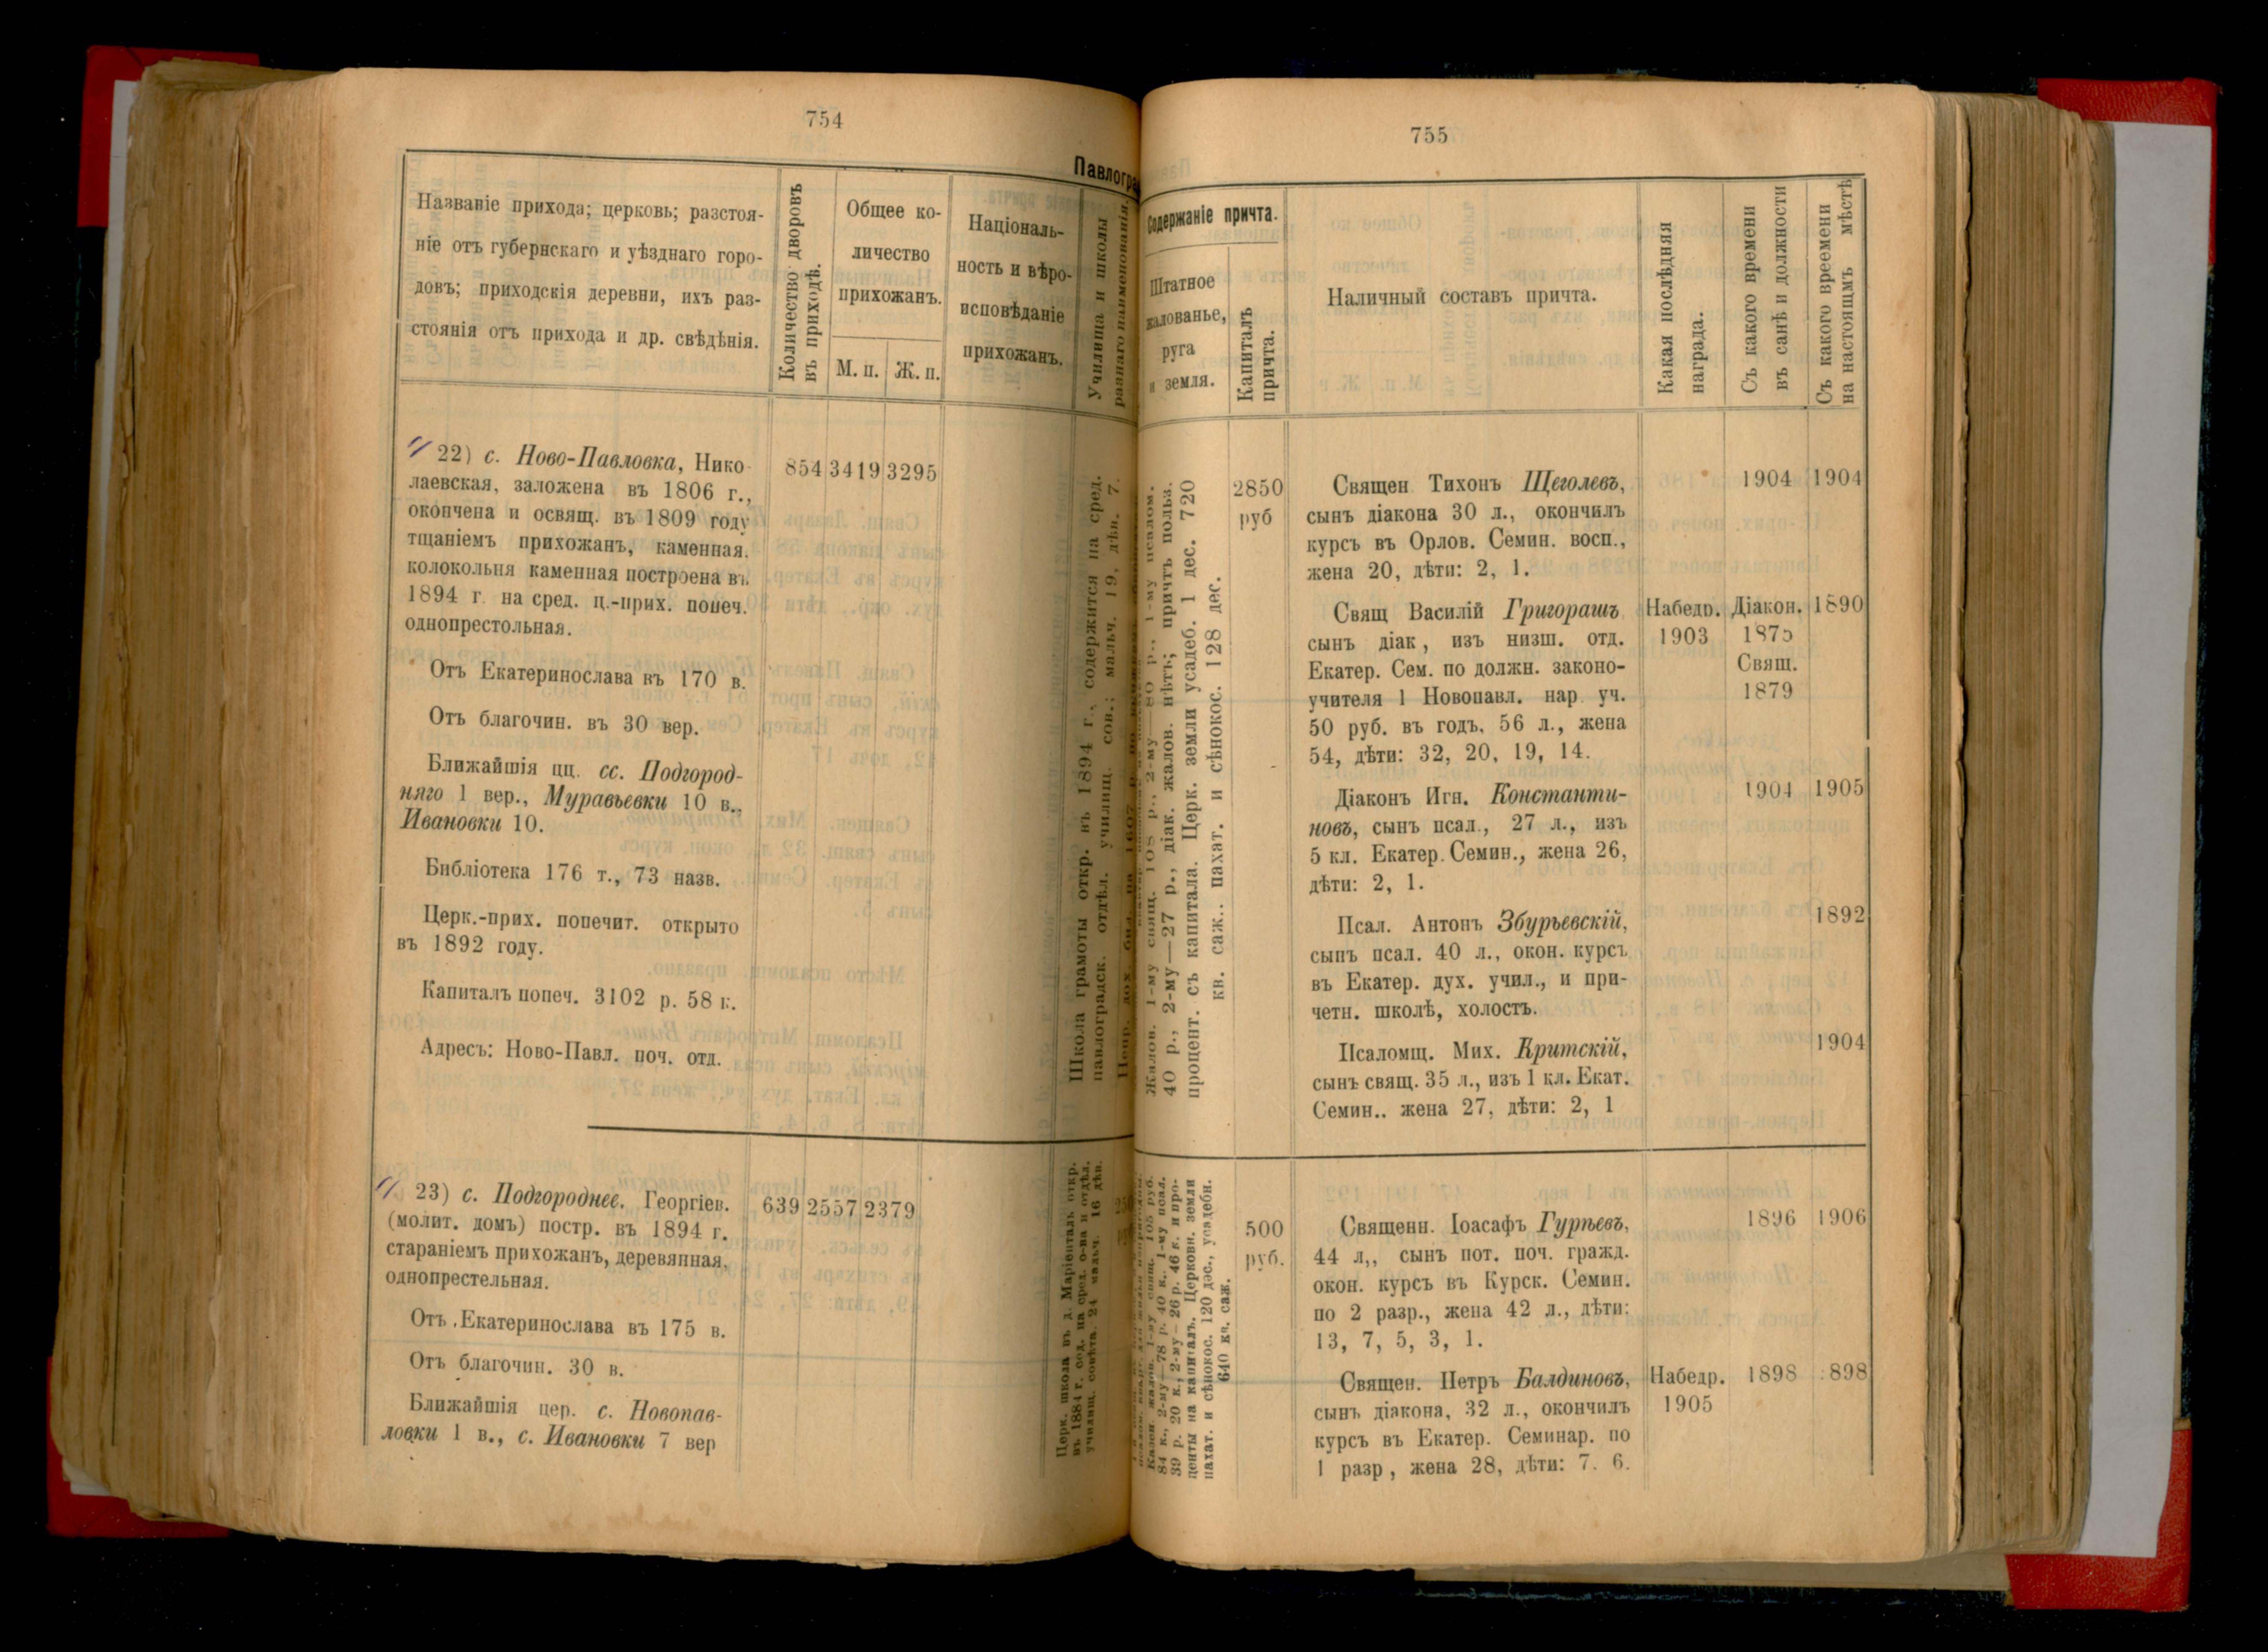 754
Павлогра
Названіе прихода; церковь; разстоя-
ніе отъ губернскаго и уѣзднаго горо-
довъ; приходскія деревни, ихъ раз-
стоянія отъ прихода и др. свѣдѣнія.
Количество дворовъ
въ приходѣ.
Общее ко-
личество
прихожанъ.
М. п.
Ж. п.
Національ-
ность и вѣро-
исповѣданіе
прихожанъ.
Училища и школы
разнаго наименованія.
22) с. Ново-Павловка, Нико-
лаевская, заложена въ 1806 г.,
окончена и освящ. въ 1809 году
тщаніемъ прихожанъ, каменная.
колокольня каменная построена въ
1894 г. на сред. ц.-прих. попеч.
однопрестольная.
Отъ Екатеринослава въ 170 в.
Отъ благочин. въ 30 вер.
Ближайшія цц. сс. Подгород-
няго 1 вер., Муравьевки 10 в.,
Ивановки 10.
Библіотека 176 т., 73 назв.
Церк.-прих. попечит. открыто
въ 1892 году.
Капиталъ попеч. 3102 р. 58 к.
Адресъ: Ново-Павл. поч. отд.
854 3419 3295
Школа грамоты откр. въ 1894 г., содержится на сред.
павлоградск. отдѣл. училищ. сов.; мальч. 19, дѣв. 7.
23) с. Подгороднее. Георгіев.
(молит. домъ) постр. въ 1894 г.
стараніемъ прихожанъ, деревянная,
однопрестельная.
Отъ Екатеринослава въ 175 в.
Отъ благочин. 30 в.
Ближайшія цер. с. Новопав-
ловки 1 в., с. Ивановки 7 вер
639 2557 2379
Церк. школа въ д. Маріенталь откр.
въ 1884 г. сод. на сред. о-ва и отдѣл.
училищ. совѣта. 24 мальч. 16 дѣв.
755
Содержаніе причта.
Штатное
жалованье,
руга
и земля.
Капиталъ
причта.
Наличный составъ причта.
Какая послѣдняя
награда.
Съ какого времени
въ санѣ и должности
Съ какого вреемени
на настоящмъ мѣстѣ
Жалов. 1-му свящ. 108 р., 2-му—80 р., 1-му псалом.
40 р., 2-му—27 р., діак. жалов. нѣтъ; причтъ польз.
процент. съ капитала. Церк. земли усадеб. 1 дес. 720
кв. саж.. пахат. и сѣнокос. 128 дес.
2850
руб
Священ Тихонъ Щеголевъ,
сынъ діакона 30 л., окончилъ
курсъ въ Орлов. Семин. восп.,
жена 20, дѣти: 2, 1.
1904 1904
Свящ Василій Григорашъ
сынъ діак, изъ низш. отд.
Екатер. Сем. по должн. законо-
учителя 1 Новопавл. нар уч.
50 руб. въ годъ, 56 л., жена
54, дѣти: 32, 20, 19, 14.
Набедр.
1903
Діакон.
1875
Свящ.
1879
1890
Діаконъ Игн. Константи-
новъ, сынъ псал., 27 л., изъ
5 кл. Екатер. Семин., жена 26,
дѣти: 2, 1.
1904 1905
Псал. Антонъ Збурьевскій,
сынъ псал. 40 л., окон. курсъ
въ Екатер. дух. учил., и при-
четн. школѣ, холостъ.
1892
Псаломщ. Мих. Критскій,
сынъ свящ. 35 л., изъ 1 кл. Екат.
Семин.. жена 27, дѣти: 2, 1
1904
Казен. жалов. 1-му свящ. 105 руб.
84 к., 2-му—78 р. 40 к., 1-му псал.
39 р. 20 к., 2-му—26 р. 46 к. и про-
центы на капиталъ. Церковн. земли
пахат. и сѣнокос. 120 дес., усадебн.
640 кв. саж.
500
руб.
Священн. Іоасафъ Гурьевъ,
44 л,, сынъ пот. поч. гражд.
окон. курсъ въ Курск. Семин.
по 2 разр., жена 42 л., дѣти:
13, 7, 5, 3, 1.
1896 1906
Священ. Петръ Балдиновъ,
сынъ діакона, 32 л., окончилъ
курсъ въ Екатер. Семинар. по
1 разр, жена 28, дѣти: 7. 6.
Набедр.
1905
1898 898